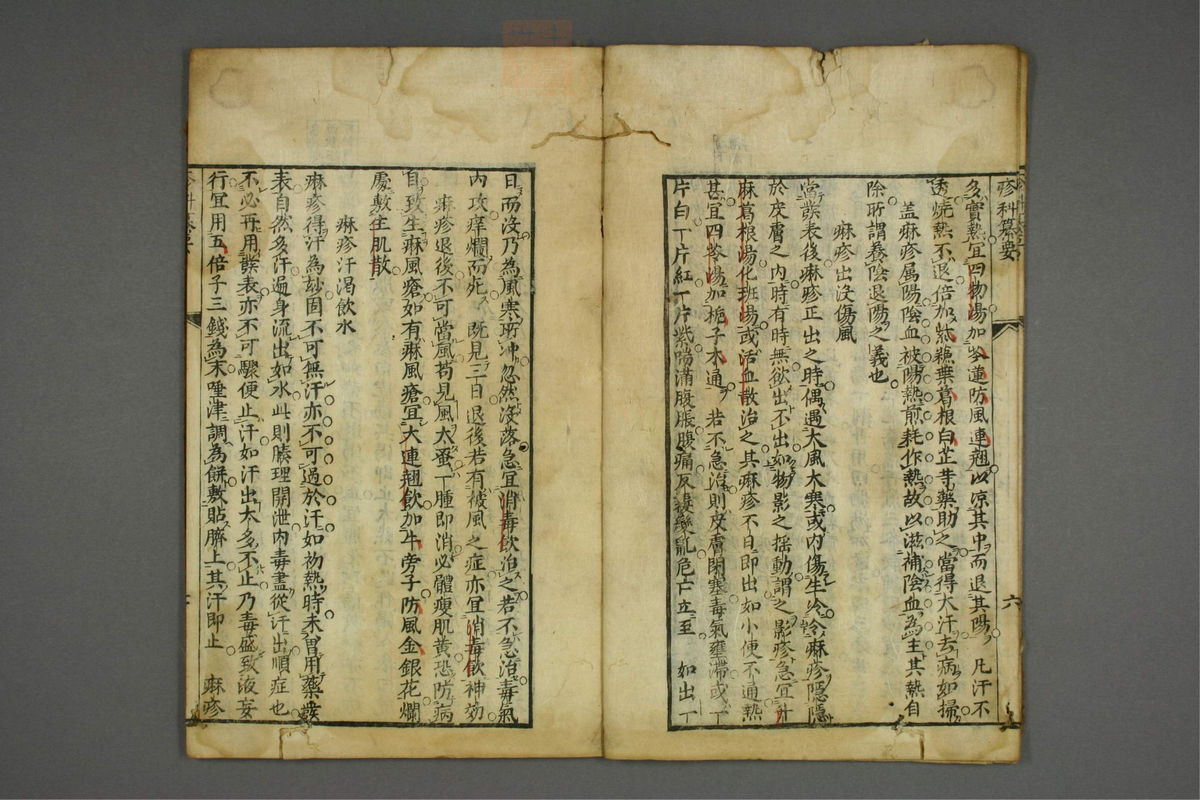 疹科纂要
六
多實熱宜四物湯加芩連防風連翹以凉其中而退其陽 凡汗不
透燒熱不退倍加紫蘓葉葛根白芷等藥助之當得大汗去病如掃
蓋麻疹属陽陰血被陽熱煎耗作熱故以滋補陰血為主其熱自
除所謂養陰退陽之義也
麻疹出沒傷風
當發表後麻疹正出之時偶遇大風大寒或内傷生冷令麻疹隱隱
於皮膚之内時有時無欲出不出如物影之揺動謂之影疹急宜升
麻葛根湯化班湯或活血散治之其麻疹不日即出如小便不通熱
甚宜四苓湯加梔子木通 若不急治則皮膚閉塞毒氣壅滯或一
片白一片紅一片紫陽滿腹脹腹痛反覆變亂危亡立至 如出一
日而沒乃為風寒所冲忽然沒落急宜消毒飲治之若不急治毒氣
内攻痒爛而死 既見三日退後若有被風之症亦宜消毒飲神効
麻疹退後不可當風苟見風太蚤一腫即消必體瘦肌黄恐防病
目致生麻風瘡如有麻風瘡宜大連翹飲加牛旁子防風金銀花爛
處敷生肌散
麻疹汗渴飲水
麻疹得汗為玅固不可無汗亦不可過於汗如初熱時未曽用藥發
表自然多汗遍身流出如水此則腠理開泄内毒盡從汗出順症也
不必再用發表亦不可驟便止汗如汗出太多不止乃毒盛致液妄
行宜用五倍子三錢為末唾津調為餅敷貼臍上其汗即止 麻疹